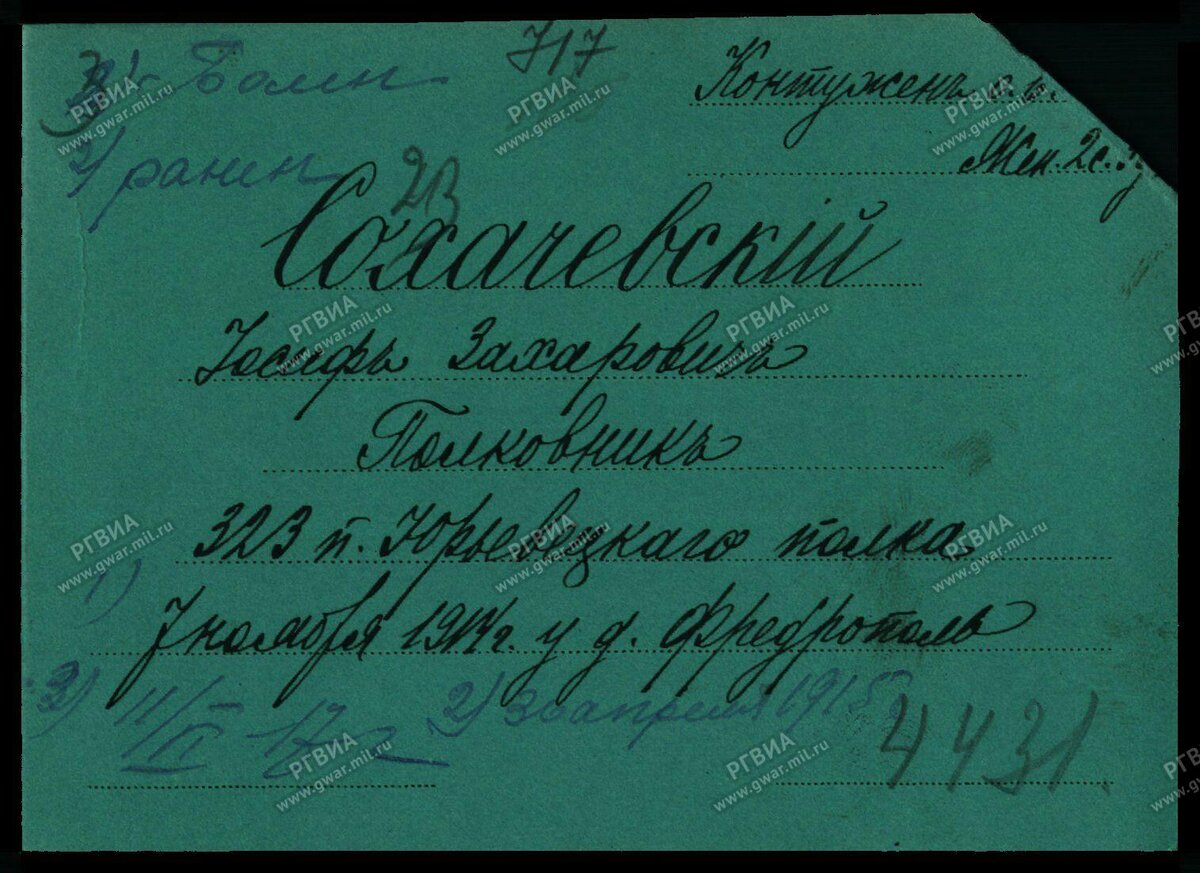 717
3) г. Болен
Контуженъ о. п.
2) ранен
Жен. 2 с.
Сохачевскій
Іосифъ Захаровичъ
Полковникъ
323 п. Юрьевецкаго полка
1)
7 ноября 1914 г. у д. Фредрополь
3) 11/II 17 г. 2) 30 апреля 1915
4431.
РГВИА
www.gwar.mil.ru